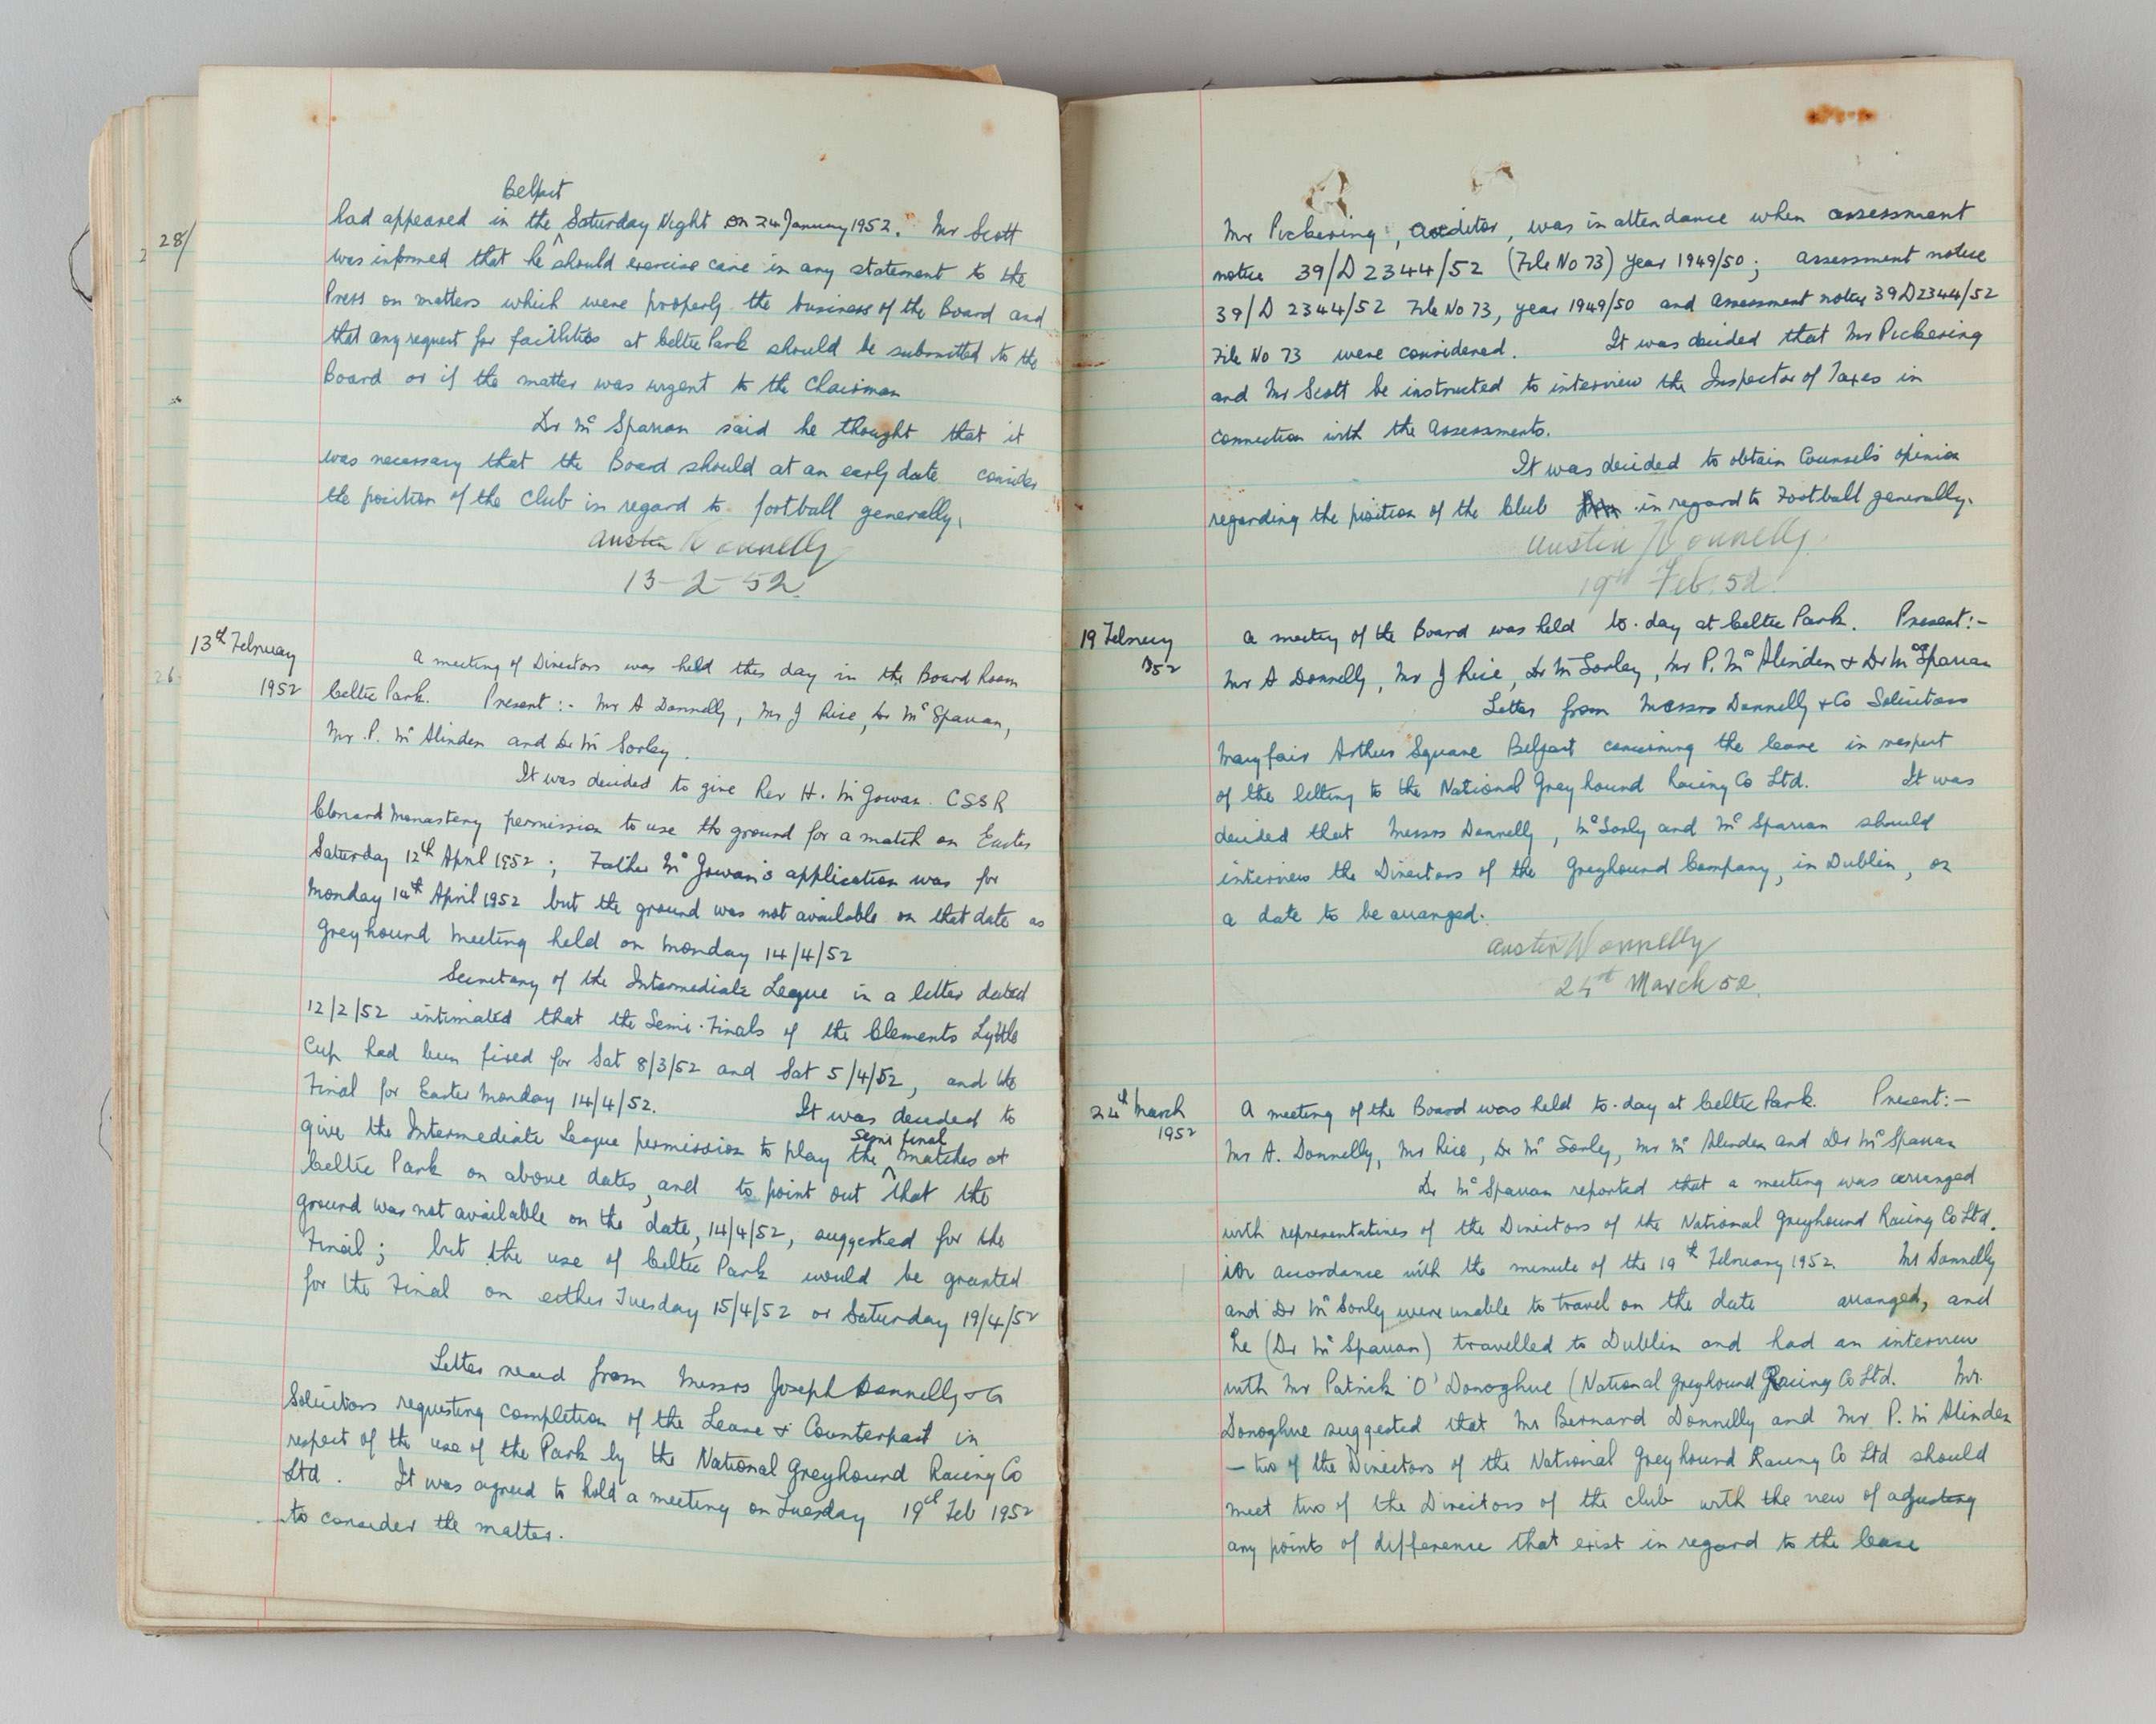 28/
Belfast
had appeared in the Saturday Night on 24 January 1952. Mr Scott
was informed that he should exercise care in any statement to the
Press on matters which were properly the business of the Board and
that any request for facilities at Celtic Park should be submitted to the
Board or if the matter was urgent to the Chairman
Dr Mc Sparran said he thought that it
was necessary that the Board should at an early date consider
the position of the Club in regard to football generally.
Austin Donnelly
13-2-52.
13th February
1952
A meeting of Directors was held this day in the Board Room
Celtic Park. Present :- Mr A Donnelly, Mr J Rice, Dr Mc Sparran,
Mr. P. Mc Alinden and Dr Mc Sorley.
It was decided to give Rev H. Mc Gowan. CSSR
Clonard Monastery permission to use the ground for a match on Easter
Saturday 12th April 1952 ; Father Mc Gowan's application was for
Monday 14th April 1952 but the ground was not available on that date as
Greyhound Meeting held on Monday 14/4/52
Secretary of the Intermediate League in a letter dated
12/2/52 intimated that the Semi-Finals of the Clements Lyttle
Cup had been fixed for Sat 8/3/52 and Sat 5/4/52, and the
Final for Easter Monday 14/4/52. It was decided to
give the Intermediate League permission to play the semi final matches at
Celtic Park on above dates, and to point out that the
ground was not available on the date, 14/4/52, suggested for the
Final ; but the use of Celtic Park would be granted
for the Final on either Tuesday 15/4/52 or Saturday 19/4/52
Letter read from Messrs Joseph Donnelly & Co
Solicitors requesting completion of the Lease & Counterpart in
respect of the use of the Park by the National Greyhound Racing Co
Ltd. It was agreed to hold a meeting on Tuesday 19th Feb 1952
to consider the matter.
Mr Pickering, auditor, was in attendance when assessment
notice 39/D 2344/52 (File No 73) year 1949/50; assessment notice
39/D 2344/52 File No 73, year 1949/50 and assessment notice 39D2344/52
File No 73 were considered. It was decided that Mr Pickering
and Mr Scott be instructed to interview the Inspector of Taxes in
connection with the assessments.
It was decided to obtain Counsel's opinion
regarding the position of the Club in regard to Football generally.
Austin Donnelly
19th Feb. 52.
19 February
1952
A meeting of the Board was held to-day at Celtic Park. Present:-
Mr A Donnelly, Mr J Rice, Dr Mc Sorley, Mr P. Mc Alinden & Dr Mc Sparran
Letter from Messrs Donnelly & Co Solicitors
Mayfair Arthur Square Belfast concerning the lease in respect
of the letting to the National Greyhound Racing Co Ltd. It was
decided that Messrs Donnelly, Mc Sorly and Mc Sparran should
interview the Directors of the Greyhound Company, in Dublin, on
a date to be arranged.
Austin Donnelly
24th March 52.
24th March
1952
A meeting of the Board was held to-day at Celtic Park. Present:-
Mr A. Donnelly, Mr Rice, Dr Mc Sorley, Mr Mc Alinden and Dr Mc Sparran
Dr Mc Sparran reported that a meeting was arranged
with representatives of the Directors of the National Greyhound Racing Co Ltd.
in accordance with the minute of the 19th February 1952. Mr Donnelly
and Dr Mc Sorly were unable to travel on the date arranged, and
he (Dr Mc Sparran) travelled to Dublin and had an interview
with Mr Patrick 'O' Donoghue (National Greyhound Racing Co Ltd. Mr.
Donoghue suggested that Mr Bernard Donnelly and Mr P. Mc Alinden
- two of the Directors of the National Greyhound Racing Co Ltd should
meet two of the Directors of the club with the view of adjusting
any points of difference that exist in regard to the lease